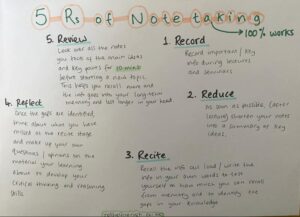 5 Rs of Notetaking
→ 100% works
5. Review
Look over all the notes
you took of the main ideas
and key points for 10 mins
before starting a new topic.
This helps you recall more and
the info goes into your long-term
memory and last longer in your head.
1. Record
Record important / key
info during lectures
and seminars
4. Reflect
Once the gaps are identified,
think about what you have
missed at the recite stage
and make up your own
questions / opinions on the
material your learning
about to develop your
critical thinking and reasoning
skills.
2. Reduce
As soon as possible, (after
lesson) shorten your notes
into a summary of key
ideas.
3. Recite
Recall the info out loud / write the
info in your own words to test
yourself on how much you can recall
from memory and to identify the
gaps in your knowledge.